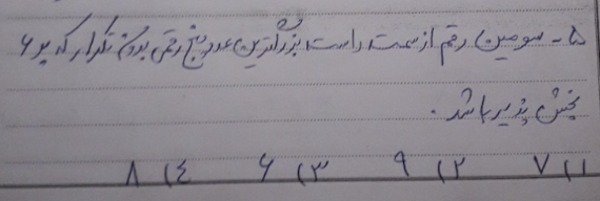 ۵- سومین رقم از سمت راست بزرگترین عدد پنج رقمی بدون تکرار که بر ۶
بخش پذیر باشد.
۱) ۷ ۲) ۹ ۳) ۶ ۴) ۸